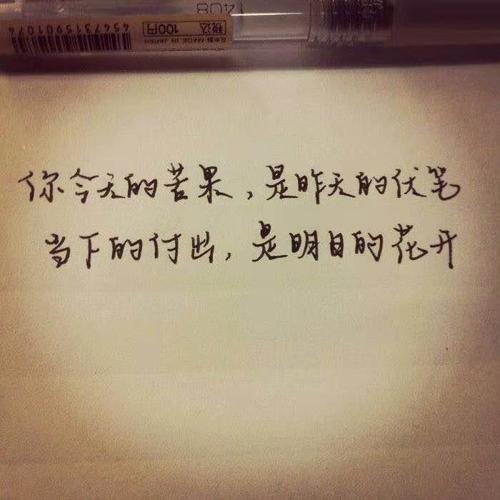 税込 100円
MADE IN JAPAN
4547315901074
你今天的苦果,是昨天的伏笔
当下的付出,是明日的花开